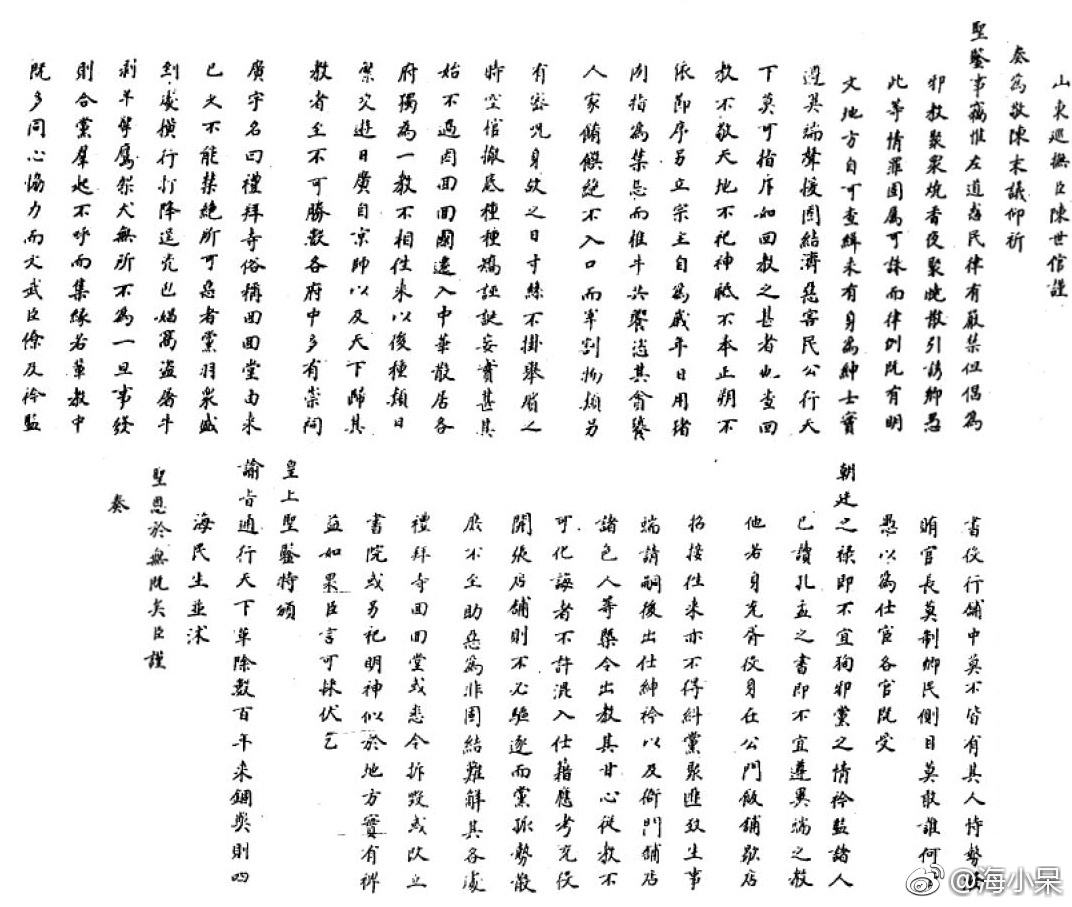 山東巡撫臣陳世倌謹
奏為敬陳末議仰祈
聖鑒事竊惟左道惑民律有嚴禁但倡為
邪教聚眾燒香夜聚曉散引誘鄉愚
此等情罪固屬可誅而律例既有明
文地方自可查緝未有身為紳士實
遵異端聲援固結濟惡害民公行天
下莫可指斥如回教之甚者也查回
教不敬天地不祀神祗不本正朔不
依節序另立宗主自為歲年日用猪
肉指為禁忌而椎牛共饗恣其貪饕
人家餚饌絕不入口而宰割物類另
有密咒身故之日寸絲不掛舉屑之
時空棺撤底種種矯誣誕妄實甚其
始不過因回回國遠入中華散居各
府獨為一教不相往來以後種類日
繁交遊日廣自京師以及天下歸其
教者至不可勝數各府中多有崇祠
廣宇名曰禮拜寺俗稱回回堂由來
已久不能禁絕所可惡者黨羽眾盛
到處橫行打降逞兇包娼窩盜屠牛
剥羊擎鷹架犬無所不為一旦事發
則合黨羣起不呼而集緣若輩教中
既多同心協力而文武臣僚及衿監
書役行舖中莫不皆有其人恃勢
賄官長莫制鄉民側目莫敢誰何
愚以為仕宦各官既受
朝廷之祿即不宜狥邪黨之情衿監諸人
已讀孔孟之書即不宜遵異端之教
他若身充胥役身在公門飯舖歇店
招接往來亦不得糾黨聚匪致生事
端請嗣後出仕紳衿以及衙門舖店
諸色人等槩令出教其甘心從教不
可化誨者不許混入仕籍應考充役
開張店舖則不必驅逐而黨孤勢散
庶不至助惡為非固結難解其各處
禮拜寺回回堂或悉令拆毀或改立
書院或另祀明神似於地方實有裨
益如果臣言可採伏乞
皇上聖鑒特頒
諭旨通行天下革除數百年來錮與則四
海民生並沐
聖恩於無既矣臣謹
奏
@海小呆